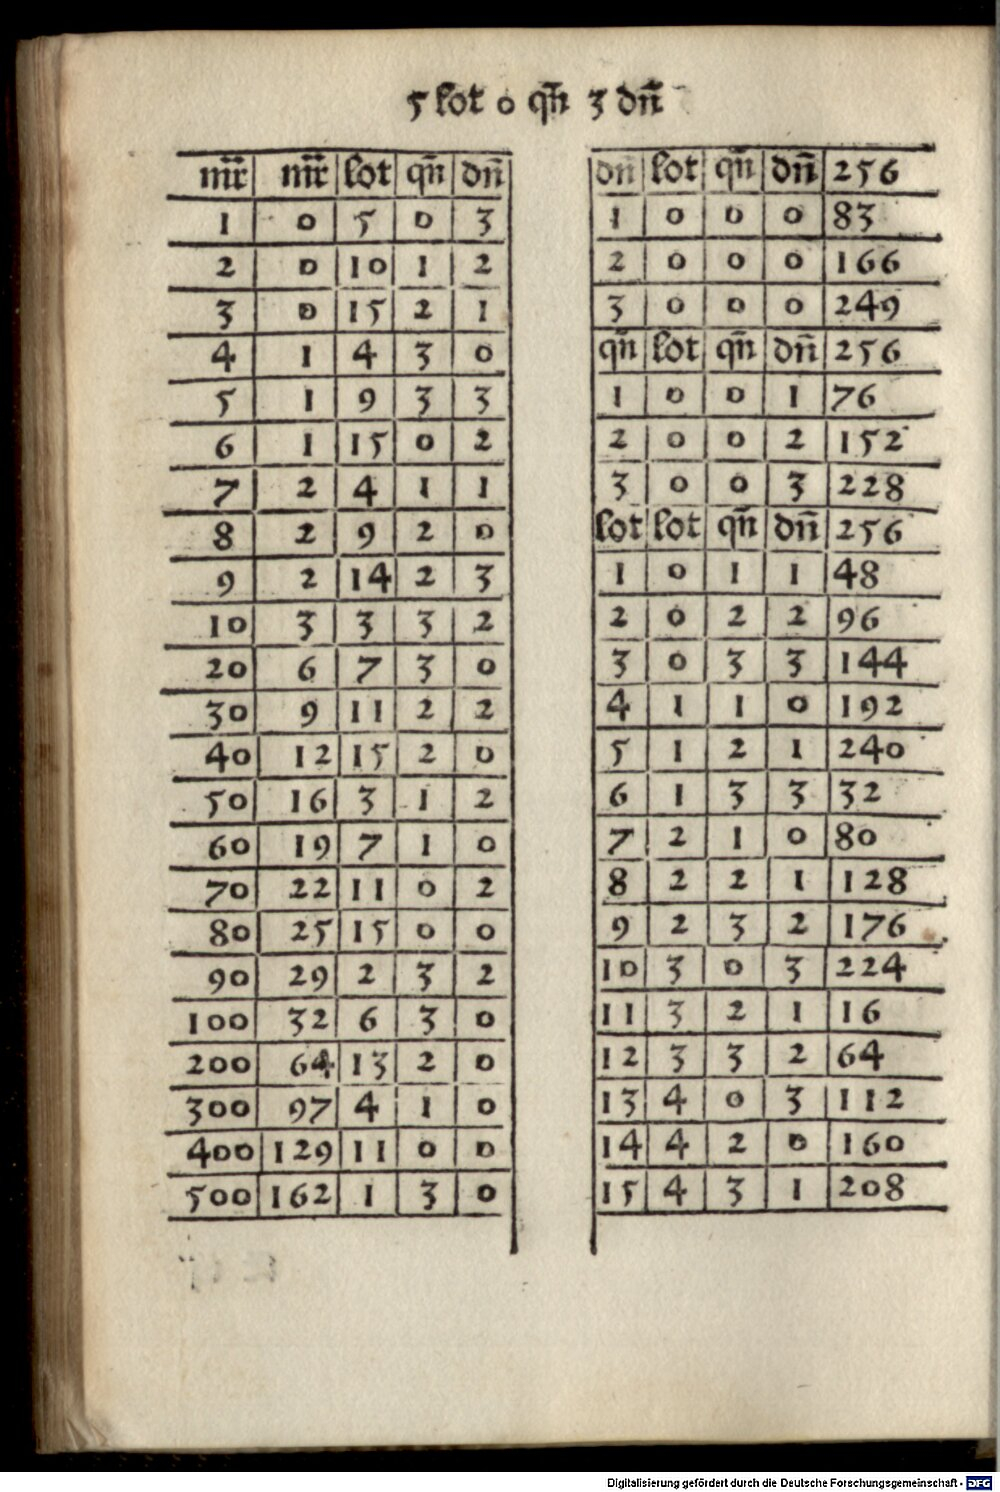 5 lot 0 qñ 3 dñ
mr̈ mr̈ lot qñ dñ
1 0 5 0 3
2 0 10 1 2
3 0 15 2 1
4 1 4 3 0
5 1 9 3 3
6 1 15 0 2
7 2 4 1 1
8 2 9 2 0
9 2 14 2 3
10 3 3 3 2
20 6 7 3 0
30 9 11 2 2
40 12 15 2 0
50 16 3 1 2
60 19 7 1 0
70 22 11 0 2
80 25 15 0 0
90 29 2 3 2
100 32 6 3 0
200 64 13 2 0
300 97 4 1 0
400 129 11 0 0
500 162 1 3 0
dñ lot qñ dñ 256
1 0 0 0 83
2 0 0 0 166
3 0 0 0 249
qñ lot qñ dñ 256
1 0 0 1 76
2 0 0 2 152
3 0 0 3 228
lot lot qñ dñ 256
1 0 1 1 48
2 0 2 2 96
3 0 3 3 144
4 1 1 0 192
5 1 2 1 240
6 1 3 3 32
7 2 1 0 80
8 2 2 1 128
9 2 3 2 176
10 3 0 3 224
11 3 2 1 16
12 3 3 2 64
13 4 0 3 112
14 4 2 0 160
15 4 3 1 208
Digitalisierung gefördert durch die Deutsche Forschungsgemeinschaft - DFG